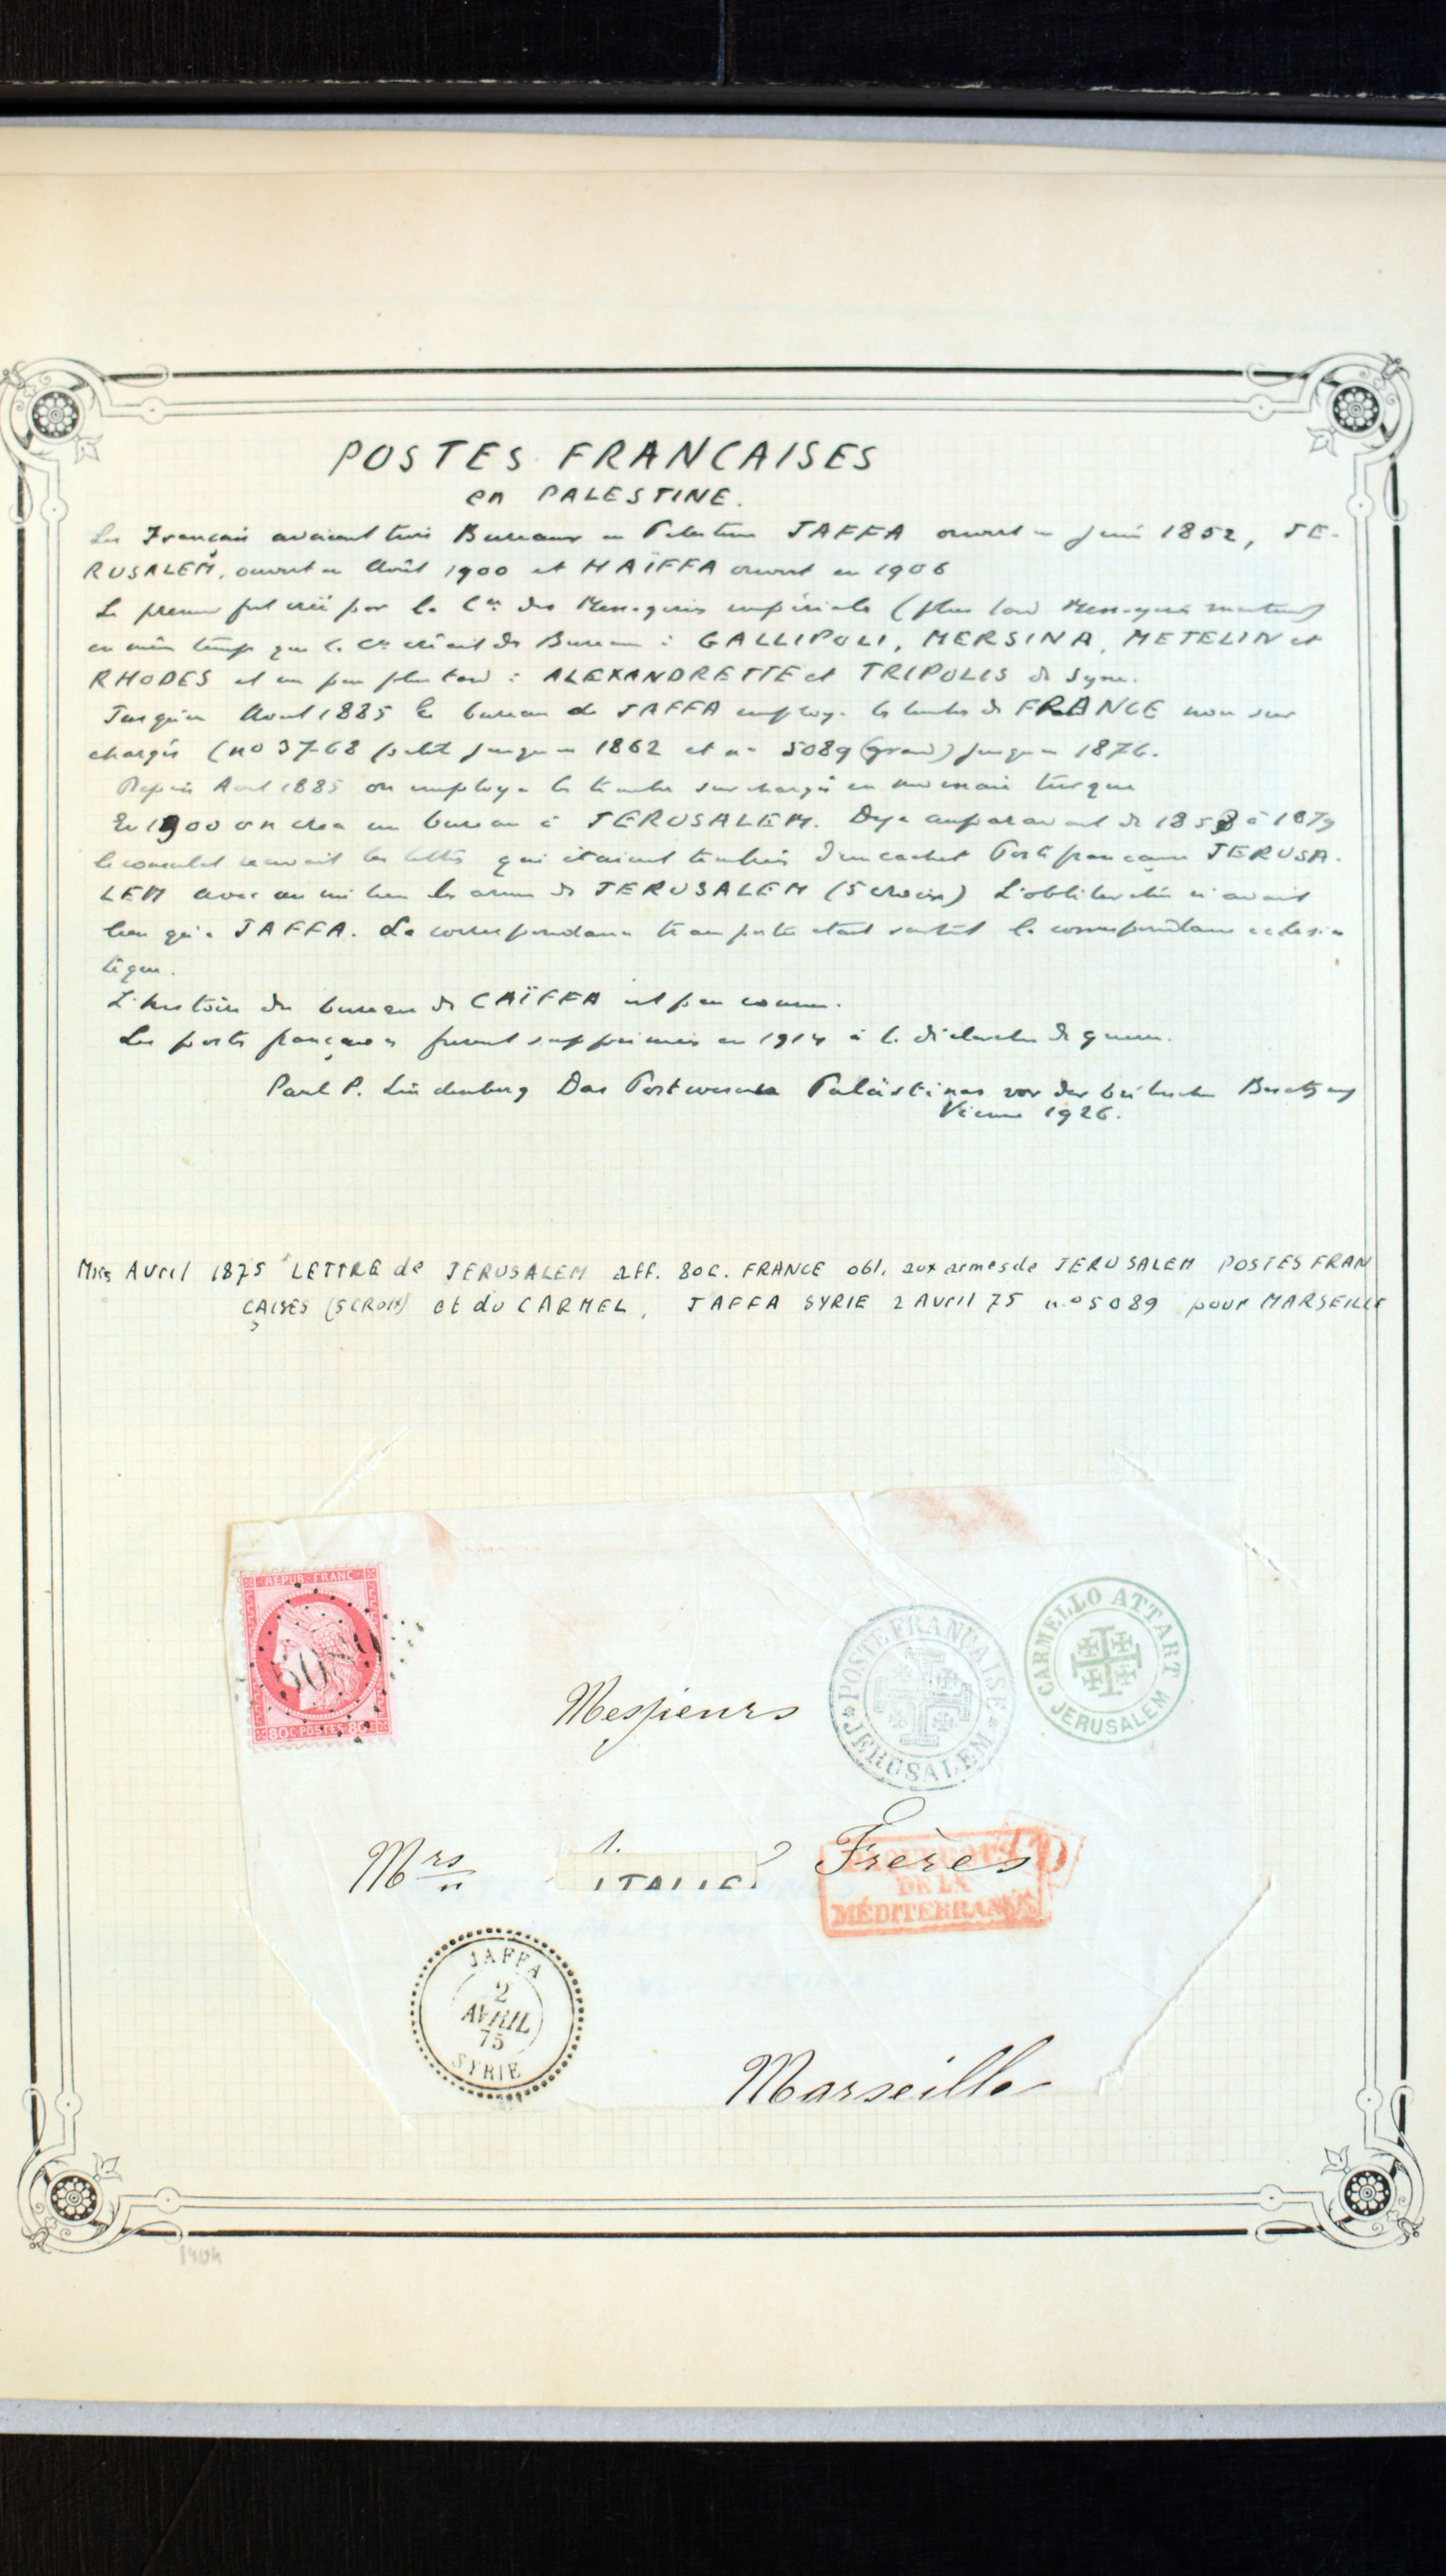 POSTES FRANCAISES
en PALESTINE.
Les Français avaient trois Bureaux en Palestine JAFFA ouvert en Juin 1852, JE-
RUSALEM, ouvert en Août 1900 et HAÏFFA ouvert en 1906
Le premier fut créé par la Cie des Messageries impériales (plus tard Messageries maritimes)
en même temps que la Cie créait des Bureaux : GALLIPOLI, MERSINA, METELIN et
RHODES et un peu plus tard : ALEXANDRETTE et TRIPOLIS de Syrie.
Jusqu'en Aout 1885 le bureau de JAFFA employa les timbres de FRANCE non sur
chargés (no 3768 petit jusqu'en 1862 et no 5089 (grand) jusqu'en 1876.
Depuis Aout 1885 on employa les timbres surchargés en monnaie turque
En 1900 on créa un bureau à JERUSALEM. Deja auparavant de 1858 à 1879
le consulat recevait les lettres qui étaient timbrées d'un cachet Poste française JERUSA-
LEM avec au milieu les armes de JERUSALEM (5 croix) L'oblitération n'avait
lieu qu'a JAFFA. La correspondance transportée etait surtout la correspondance eclesias
tique.
L'histoire du bureau de CAÏFFA est peu connue.
Les postes françaises furent supprimées en 1914 à la déclaration de guerre.
Paul P. Lindenberg Das Postwesen Palästinas vor der britischen Besetzung
Vienne 1926.
Mrs Avril 1875 LETTRE de JERUSALEM aff. 80c. FRANCE obl. aux armes de JERUSALEM POSTES FRAN
CAISES (5 CROIX) et du CARMEL, JAFFA SYRIE 2 Avril 75 no 5089 pour MARSEILLE
REPUB. FRANC.
5089
80c POSTES 80c
Messieurs
POSTE FRANÇAISE
JERUSALEM
CARMELLO ATTART
JERUSALEM
Mrs Frères
ITALIE
PAQUEBOTS
DE LA
MÉDITERRANÉE
JAFFA
2
AVRIL
75
SYRIE
Marseille